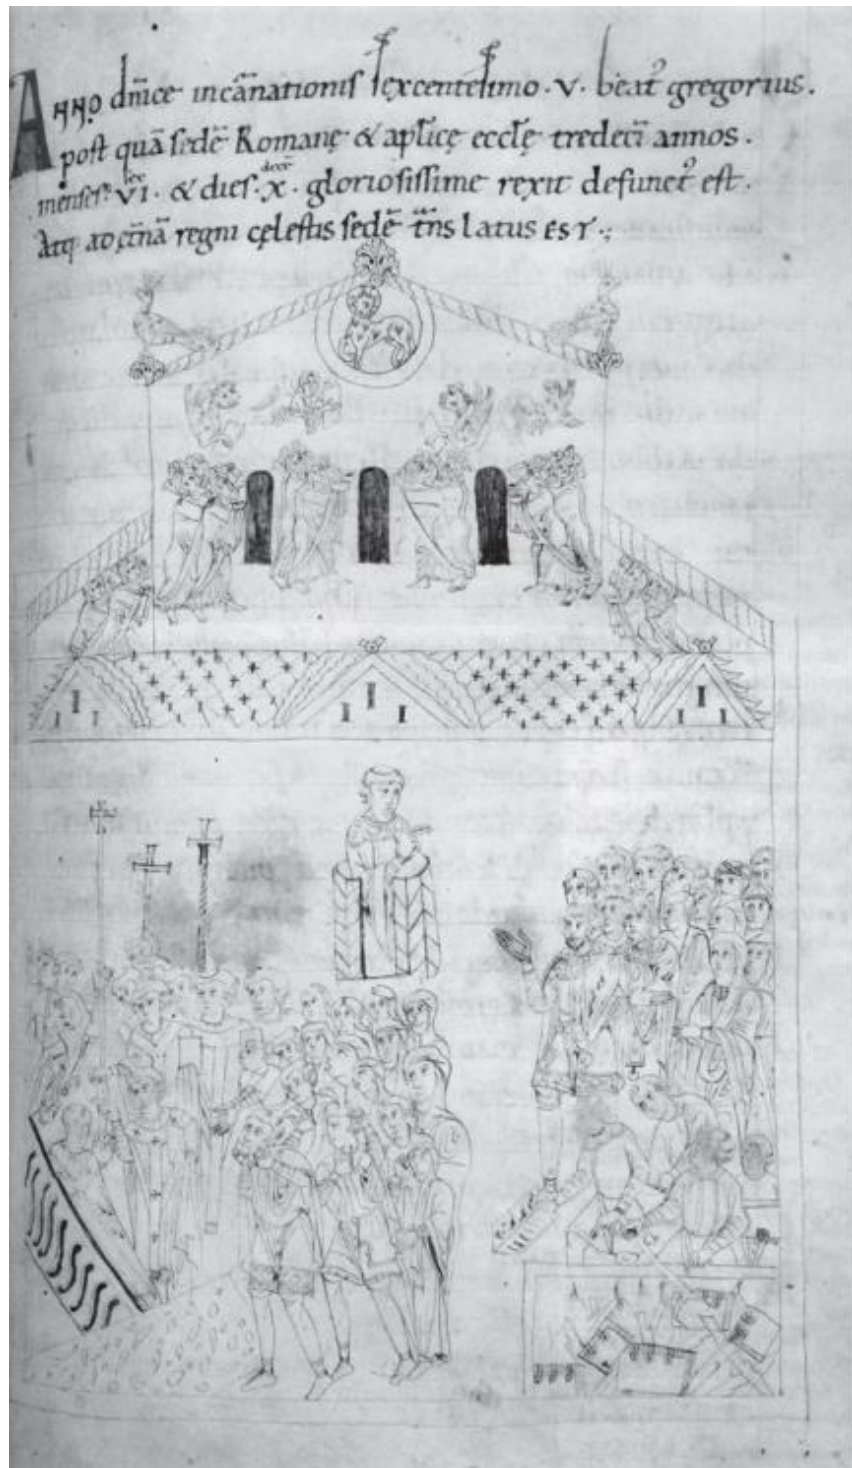 ANNO dn̄ice incarnationis sexcentesimo · v · beatꝰ gregorius .
post quā sedē Romanę & apl̄icę eccl̄ę tredecī annos .
menses · vi · & dies · x · gloriosissime rexit defunctꝰ est .
Atq; ad et̄nā regni cęlestis sedē tns̄latus EST .;